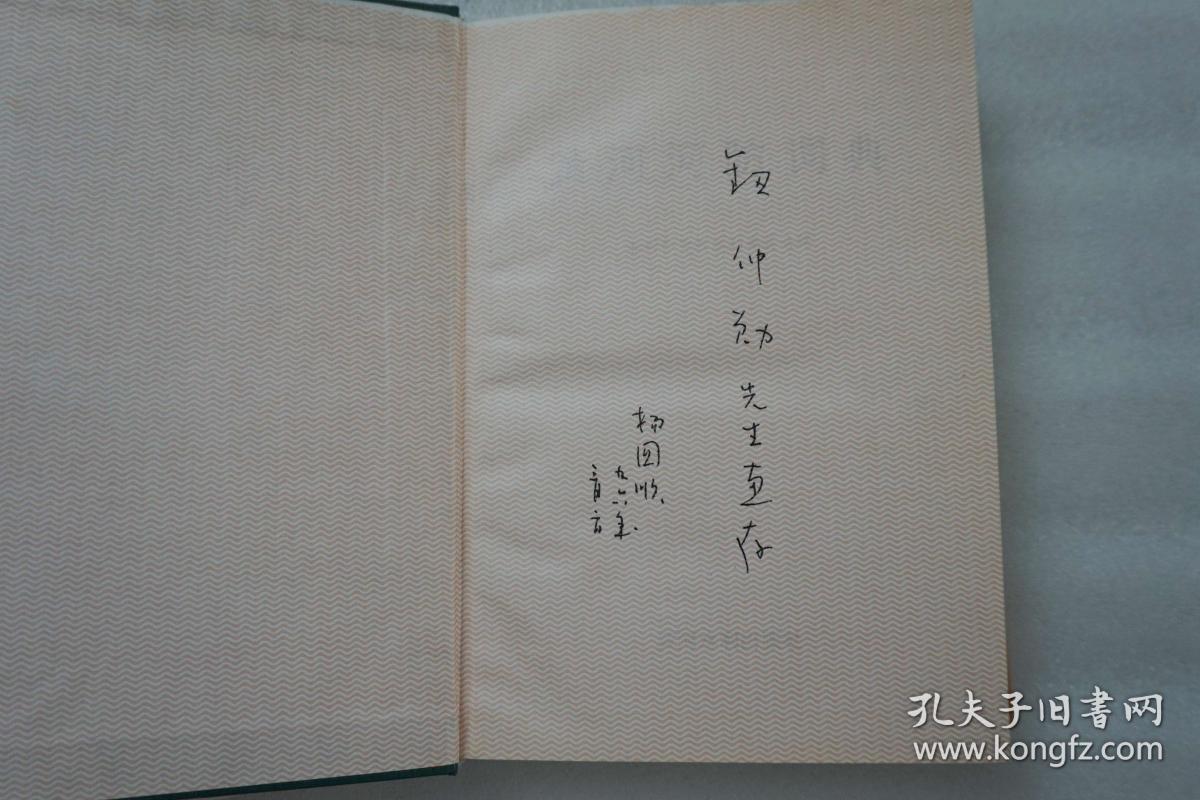 钮仲勋先生惠存
杨国顺
九六年
三月
孔夫子旧書网
www.kongfz.com